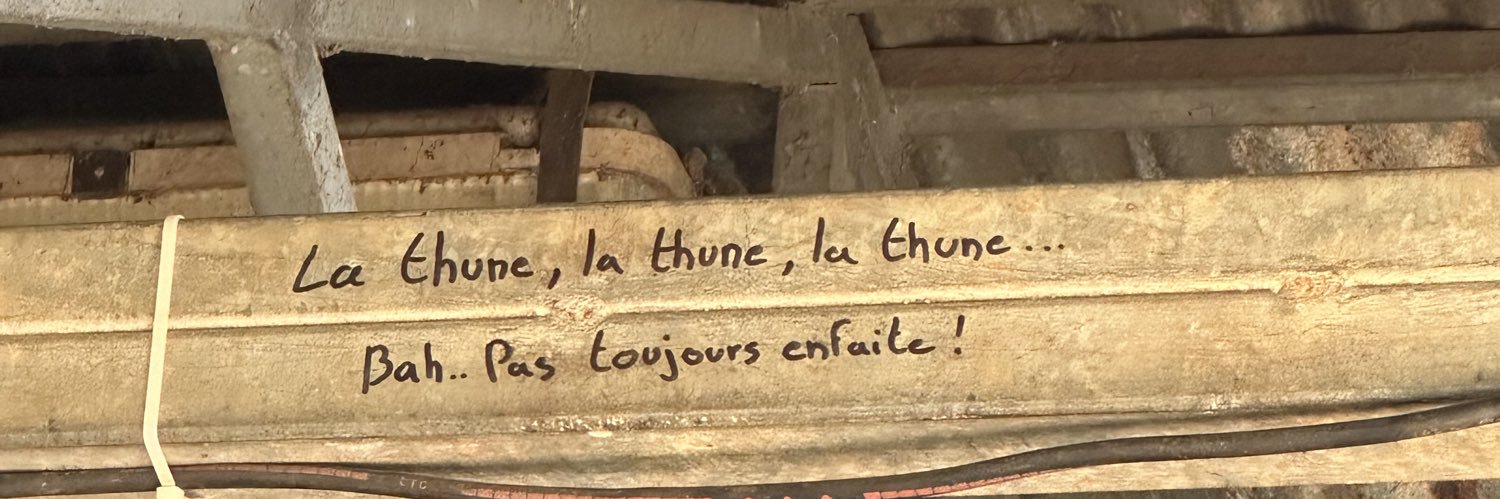 La thune, la thune, la thune...
Bah.. Pas toujours enfaite !